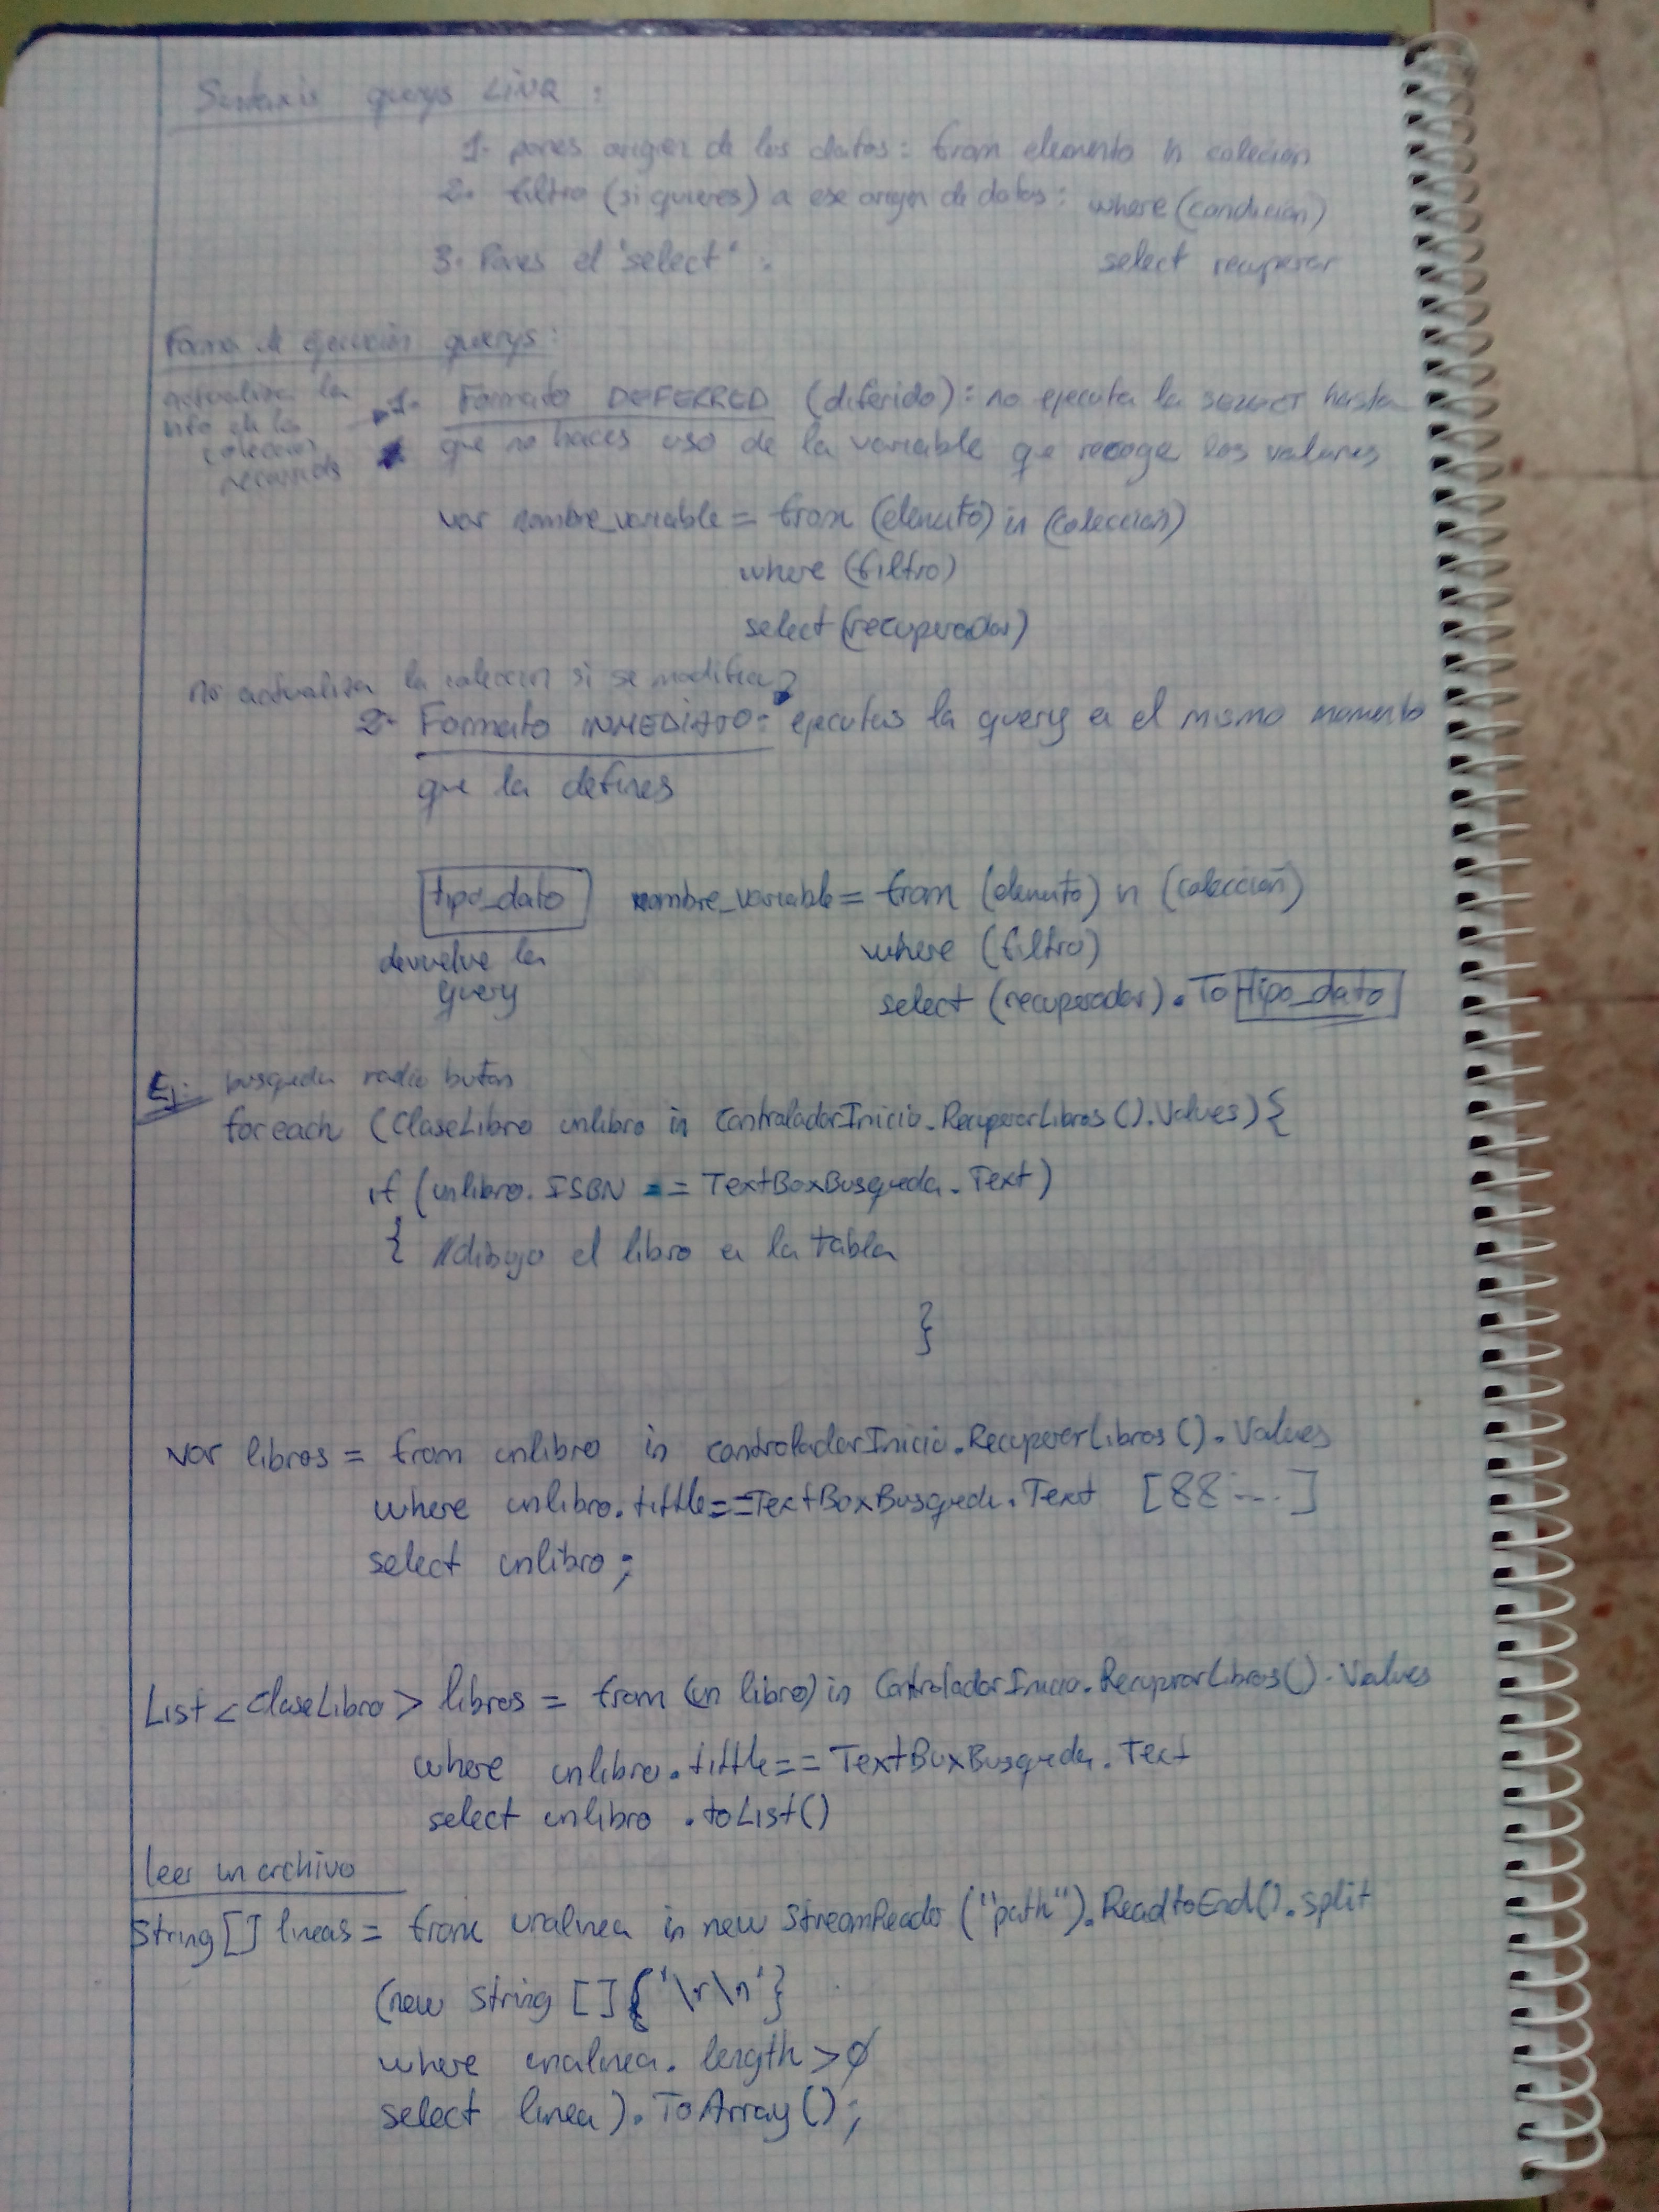 Sintaxis querys LINQ :
1- pones origen de los datos: from elemento in coleccion
2- filtro (si quieres) a ese origen de datos: where (condicion)
3- Pones el "select" : select recuperar
Forma de ejecución querys:
actualiza la
info de la
coleccion
recuerda
1- Formato DEFERRED (diferido): no ejecuta la SELECT hasta
que no haces uso de la variable que recoge los valores
var nombre_variable = from (elemento) in (coleccion)
where (filtro)
select (recuperador)
no actualiza la coleccion si se modifica
2- Formato INMEDIATO: ejecutas la query en el mismo momento
que la defines
tipo_dato nombre_variable = from (elemento) in (colección)
devuelve la where (filtro)
query select (recuperador).To tipo_dato
Ej: busqueda radio button
foreach (ClaseLibro unlibro in ControladorInicio.RecuperarLibros().Values){
if (unlibro.ISBN == TextBoxBusqueda.Text)
{ //dibujo el libro en la tabla
}
var libros = from unlibro in controladorInicio.RecuperarLibros().Values
where unlibro.tittle==TextBoxBusqueda.Text [&& ....]
select unlibro;
List<ClaseLibro> libros = from (un libro) in ControladorInicio.RecuperarLibros().Values
where unlibro.tittle==TextBoxBusqueda.Text
select unlibro .toList()
leer un archivo
String[] lineas = from unalinea in new StreamReader ("path").ReadtoEnd().split
(new String []{'\r\n'}
where unalinea.length>0
select linea).ToArray();